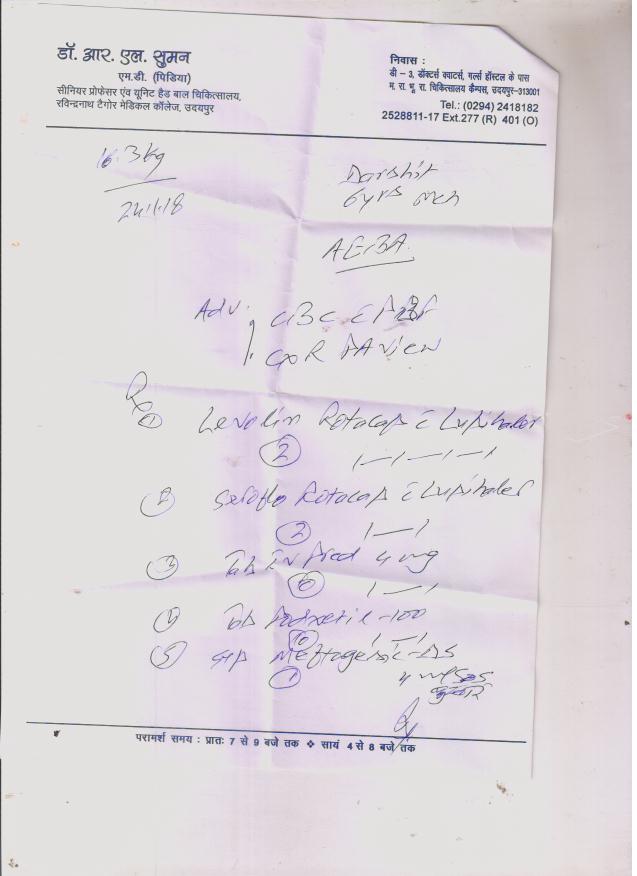 डॉ. आर. एल. सुमन
एम.डी. (पिडिया)
सीनियर प्रोफेसर एंव यूनिट हैड बाल चिकित्सालय,
रविन्द्रनाथ टैगोर मेडिकल कॉलेज, उदयपुर
निवास :
डी – 3, डॉक्टर्स क्वाटर्स, गर्ल्स हॉस्टल के पास
म. रा. भू. रा. चिकित्सालय कैम्पस, उदयपुर-313001
Tel.: (0294) 2418182
2528811-17 Ext.277 (R) 401 (O)
16.3kg
Darshit
6yrs mch
AEBA
Adv.
CBC
CXR PA view
Rx
① Levolin Rotacap c Lupihaler
② 1—1—1—1
② Seroflo Rotacap c Lupihaler
② 1—1
③ Tab Pred 4 mg
⑥ 1—1
④ Tab -100
⑩ 1—1
⑤ Syp Meftagesic-DS
① 4 ml SOS
बुखार
परामर्श समय : प्रातः 7 से 9 बजे तक ❖ सायं 4 से 8 बजे तक